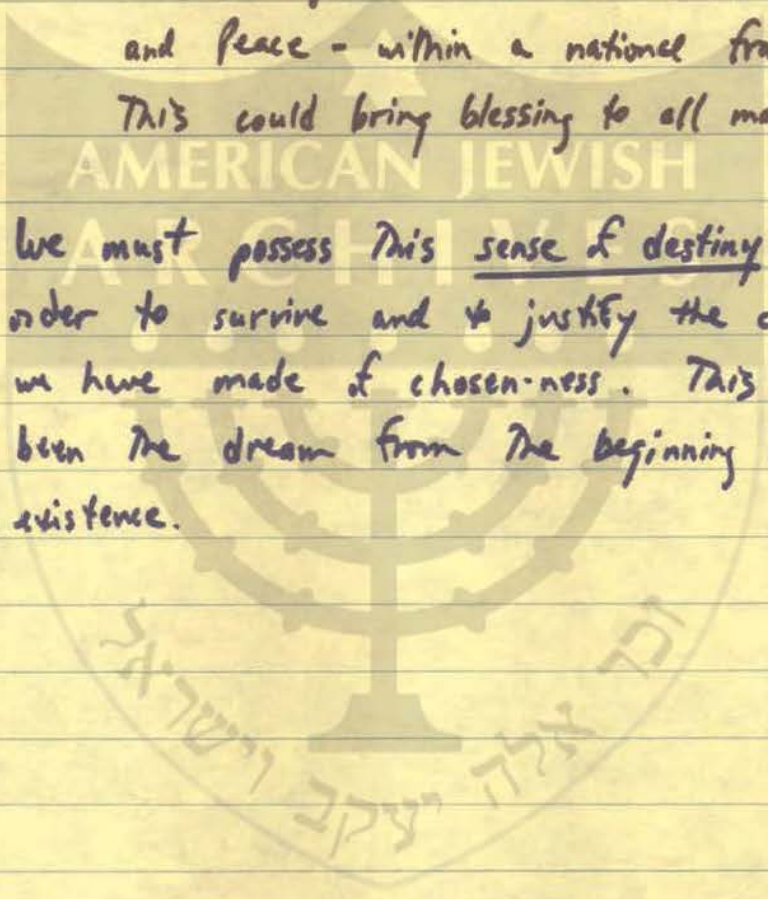 and Peace - within a national fra
This could bring blessing to all ma
AMERICAN JEWISH
ARCHIVES
We must possess this sense of destiny
order to survive and to justify the c
we have made of chosen-ness. This
been the dream from the beginning
existence.
זכר אלה יעקב וישראל